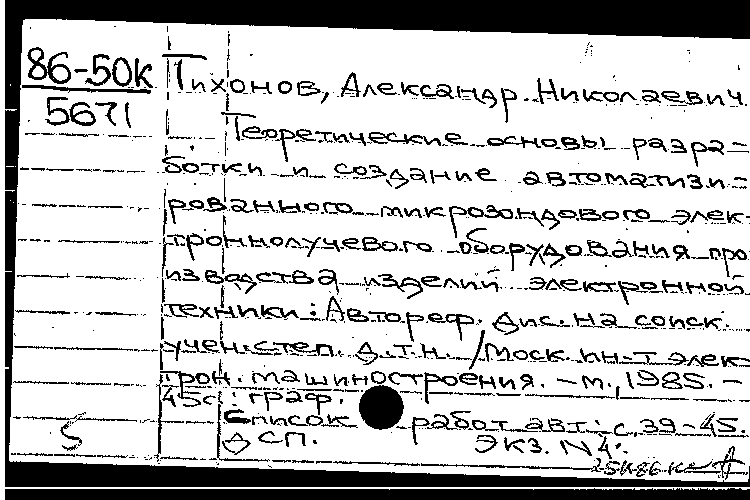 86-50к
5671
Тихонов, Александр Николаевич.
Теоретические основы разра-
ботки и создание автоматизи-
рованного микрозондового элек-
троннолучевого оборудования про
изводства изделий электронной
техники: Автореф. дис. на соиск.
учен. степ. д.т.н. / Моск. ин-т элек-
трон. машиностроения. - м., 1985. -
45с: граф.
Список работ авт.: с. 39-45.
ДСП. ЭКЗ. N4:
5